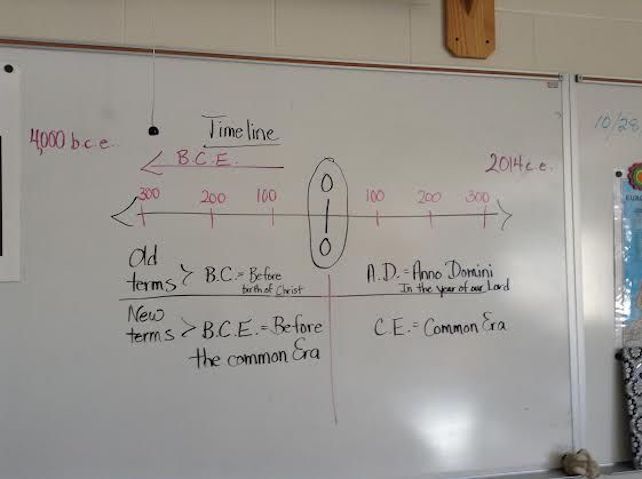 Timeline
4,000 b.c.e.
B.C.E.
2014 c.e.
10/28
300 200 100 0 100 200 300
0
Old terms > B.C. = Before birth of Christ
A.D. = Anno Domini
In the year of our Lord
New terms > B.C.E. = Before the common Era
C.E. = Common Era